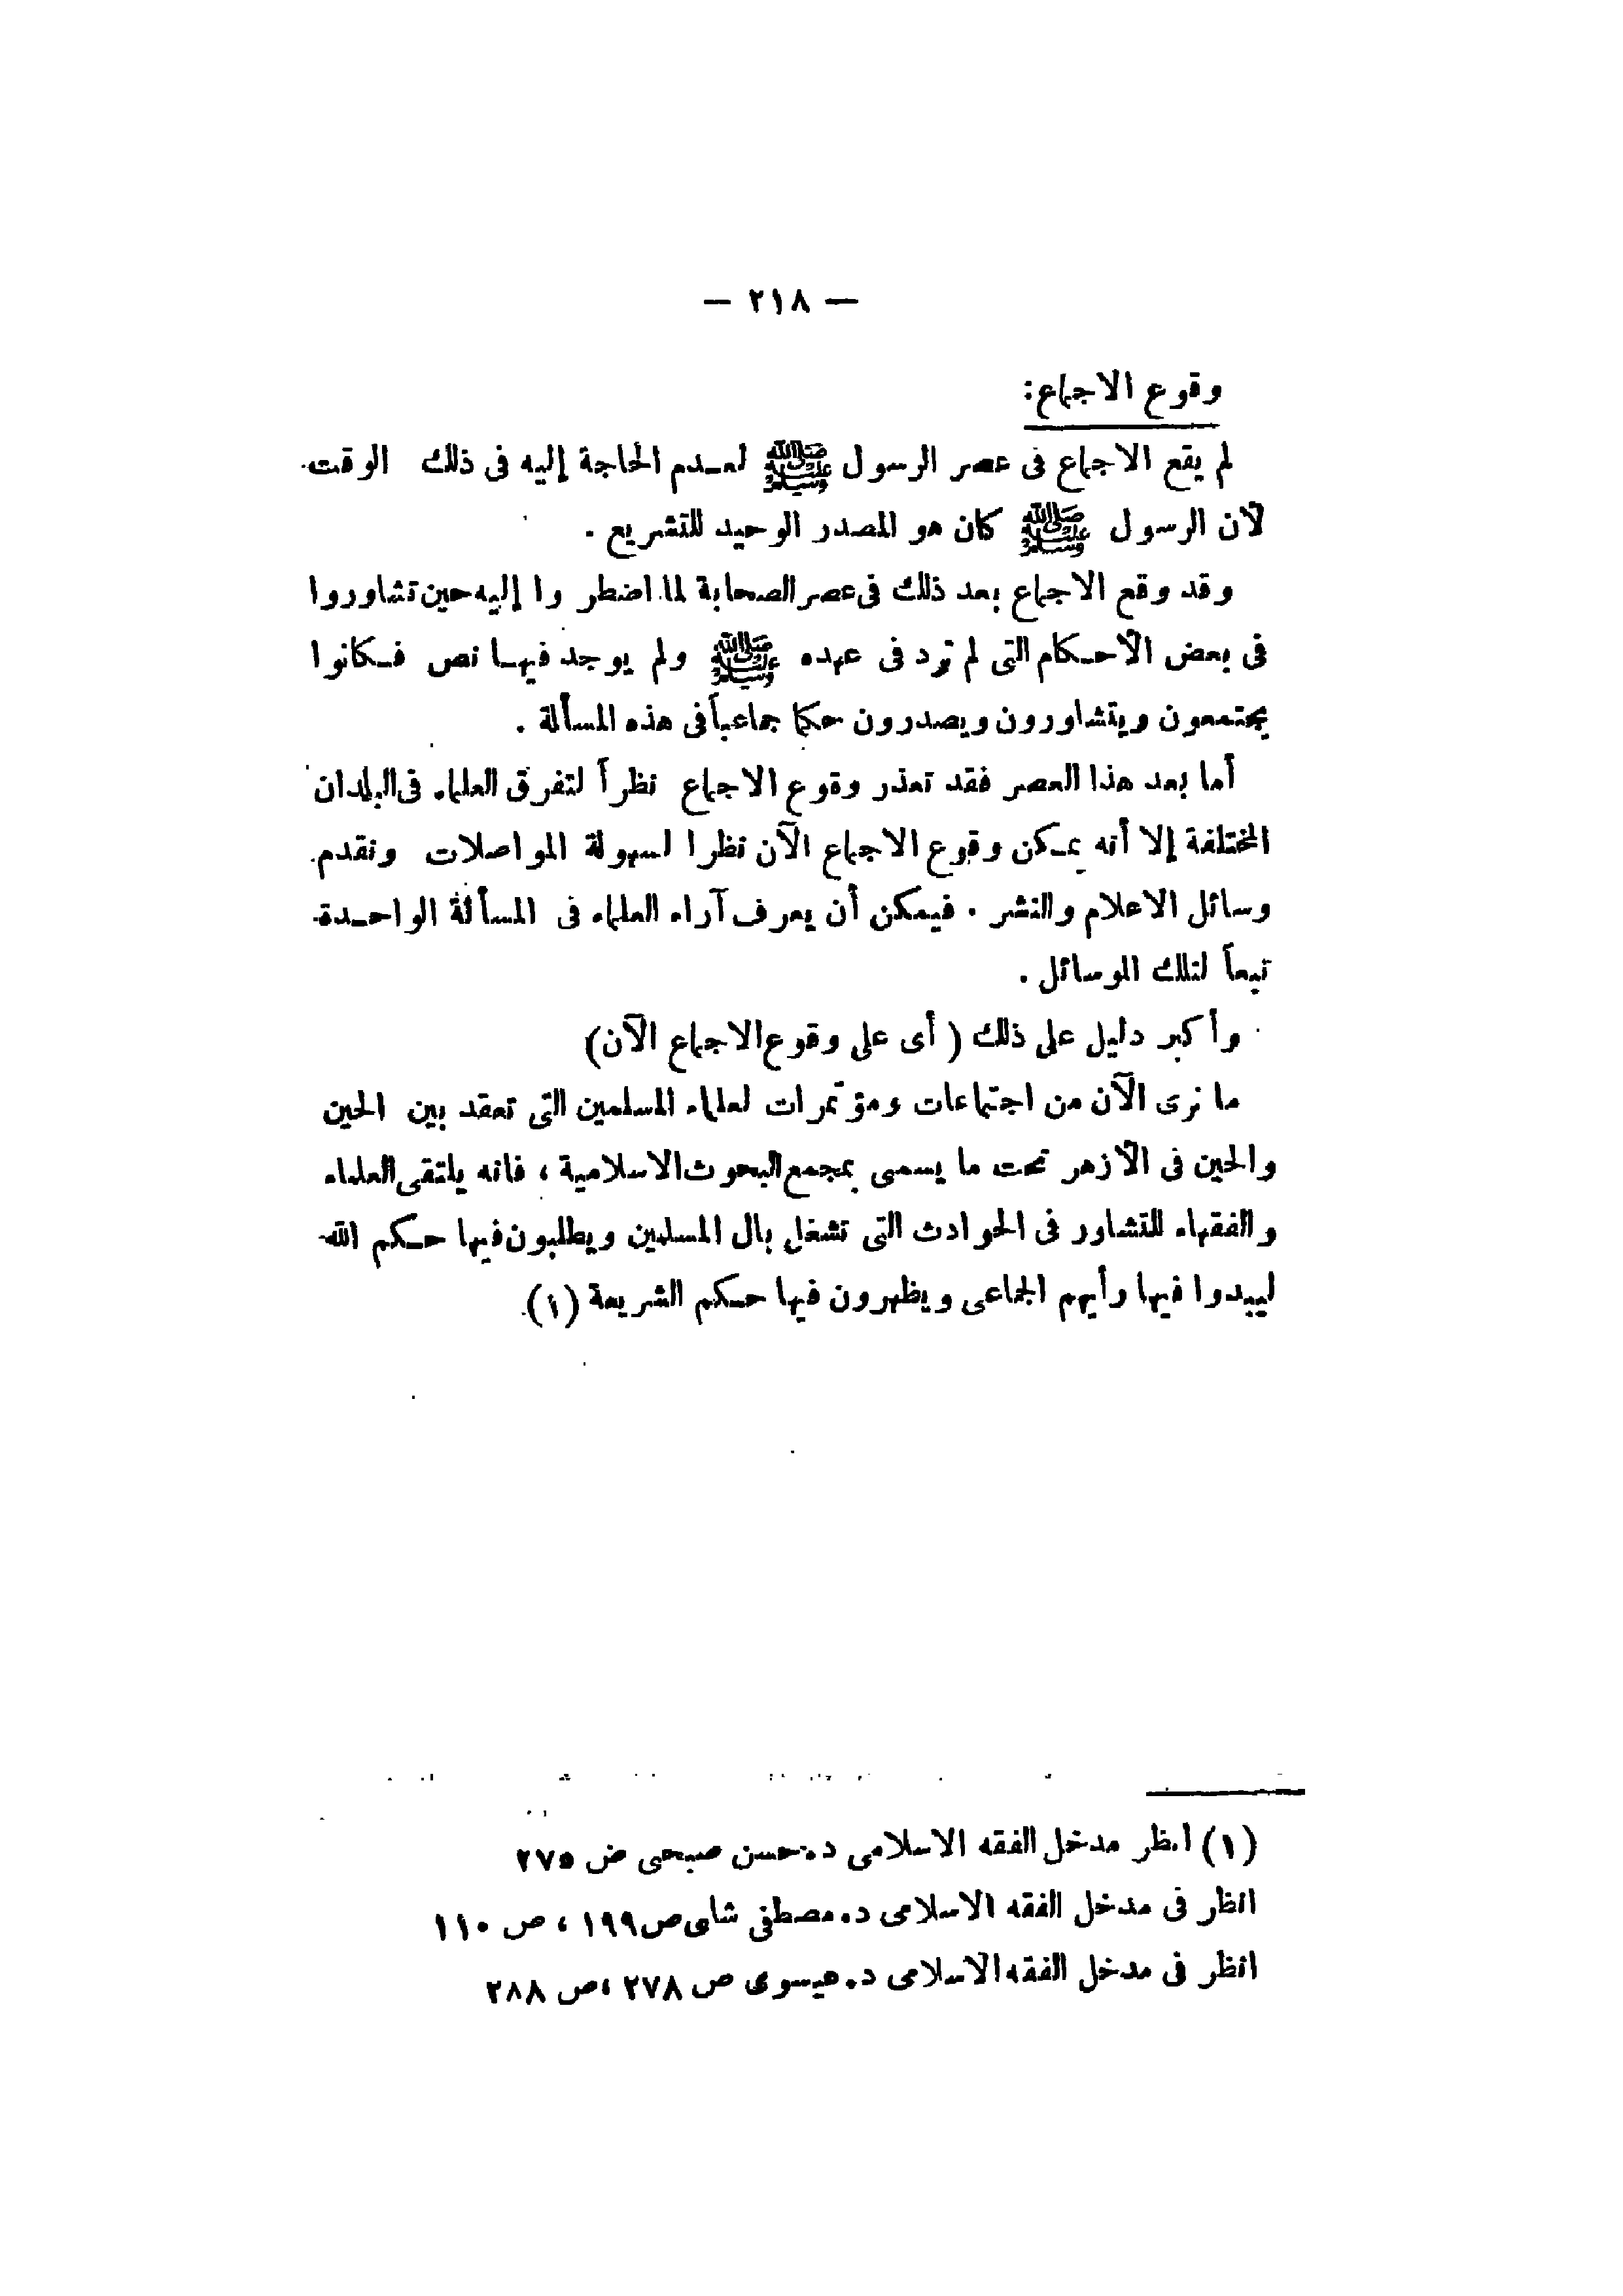 — ٢١٨ —
وقوع الاجماع:
لم يقع الاجماع فى عصر الرسول ﷺ لعدم الحاجة إليه فى ذلك الوقت
لأن الرسول ﷺ كان هو المصدر الوحيد للتشريع .
وقد وقع الاجماع بعد ذلك فى عصر الصحابة لما اضطروا إليه حين تشاوروا
فى بعض الأحكام التى لم ترد فى عهده ﷺ ولم يوجد فيها نص فكانوا
يجتمعون ويتشاورون ويصدرون حكما جماعياً فى هذه المسألة .
أما بعد هذا العصر فقد تعذر وقوع الاجماع نظراً لتفرق العلماء فى البلدان
المختلفة إلا أنه يمكن وقوع الاجماع الآن نظرا لسهولة المواصلات وتقدم
وسائل الاعلام والنشر . فيمكن أن يعرف آراء العلماء فى المسألة الواحدة
تبعاً لتلك الوسائل .
وأكبر دليل على ذلك ( أى على وقوع الاجماع الآن)
ما نرى الآن من اجتماعات ومؤتمرات لعلماء المسلمين التى تعقد بين الحين
والحين فى الأزهر تحت ما يسمى بمجمع البحوث الاسلامية ، فانه يلتقى العلماء
والفقهاء للتشاور فى الحوادث التى تشغل بال المسلمين ويطلبون فيها حكم الله
ليبدوا فيها رأيهم الجماعى ويظهرون فيها حكم الشريعة (١).
(١) انظر مدخل الفقه الاسلامى د. حسن صبحى ص ٢٧٥
انظر فى مدخل الفقه الاسلامى د. مصطفى ص ١٩٩ ، ص ١١٠
انظر فى مدخل الفقه الاسلامى د. عيسوى ص ٢٧٨ ، ص ٢٨٨